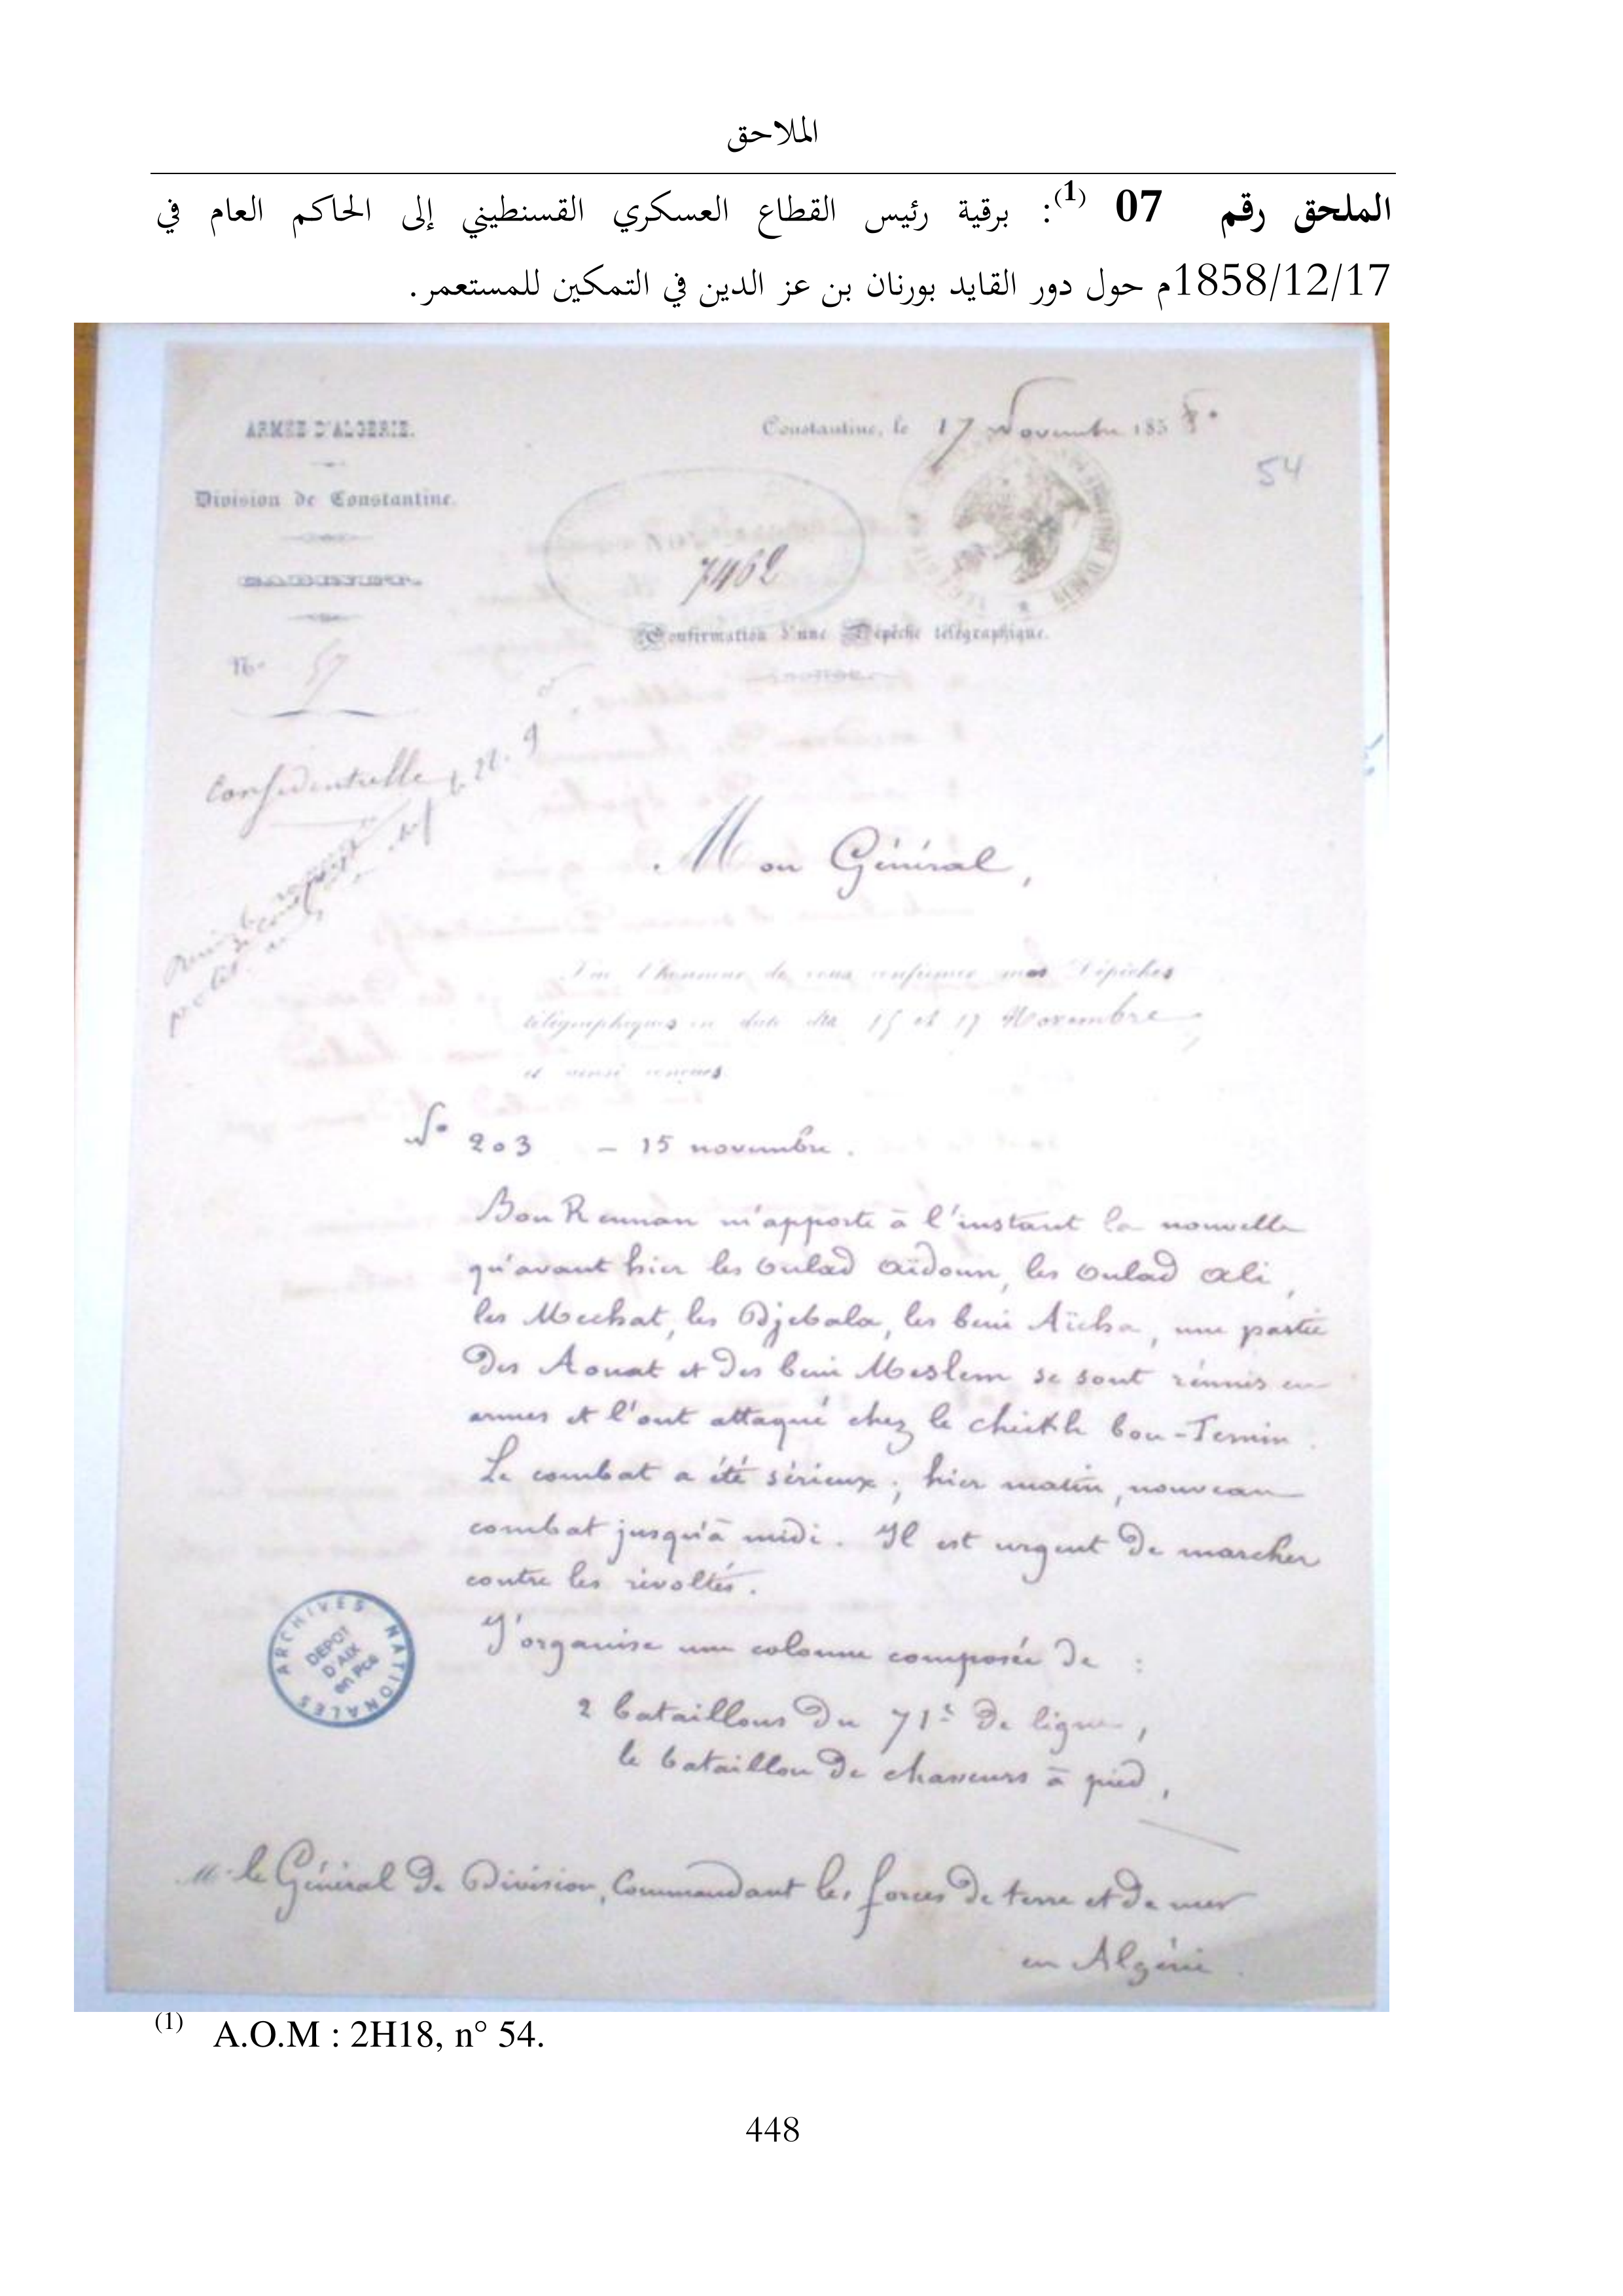 الملاحق
الملحق رقم 07 (1): برقية رئيس القطاع العسكري القسنطيني إلى الحاكم العام في
1858/12/17م حول دور القايد بورنان بن عز الدين في التمكين للمستعمر.
ARMÉE D'ALGÉRIE.
Constantine, le 17 Novembre 1858.
54
Division de Constantine.
7462
CABINET.
Confirmation d'une Dépêche télégraphique.
N° 57
Confidentielle
Mon Général,
J'ai l'honneur de vous confirmer mes Dépêches
télégraphiques en date des 15 et 17 Novembre,
et ainsi conçues
N° 203 — 15 novembre.
Bou Rennan m'apporte à l'instant la nouvelle
qu'avant hier les Oulad Aïdoun, les Oulad Ali,
les Mechat, les Djebala, les beni Aïcha, une partie
des Aouat et des beni Meslem se sont réunis en
armes et l'ont attaqué chez le cheikh bou-Temin.
Le combat a été sérieux; hier matin, nouveau
combat jusqu'à midi. Il est urgent de marcher
contre les révoltés.
J'organise une colonne composée de :
2 bataillons du 71e de ligne,
le bataillon de chasseurs à pied,
ARCHIVES NATIONALES
DÉPOT
D'AIX
en Pce
M. le Général de Division, Commandant les forces de terre et de mer
en Algérie.
(1) A.O.M : 2H18, n° 54.
448